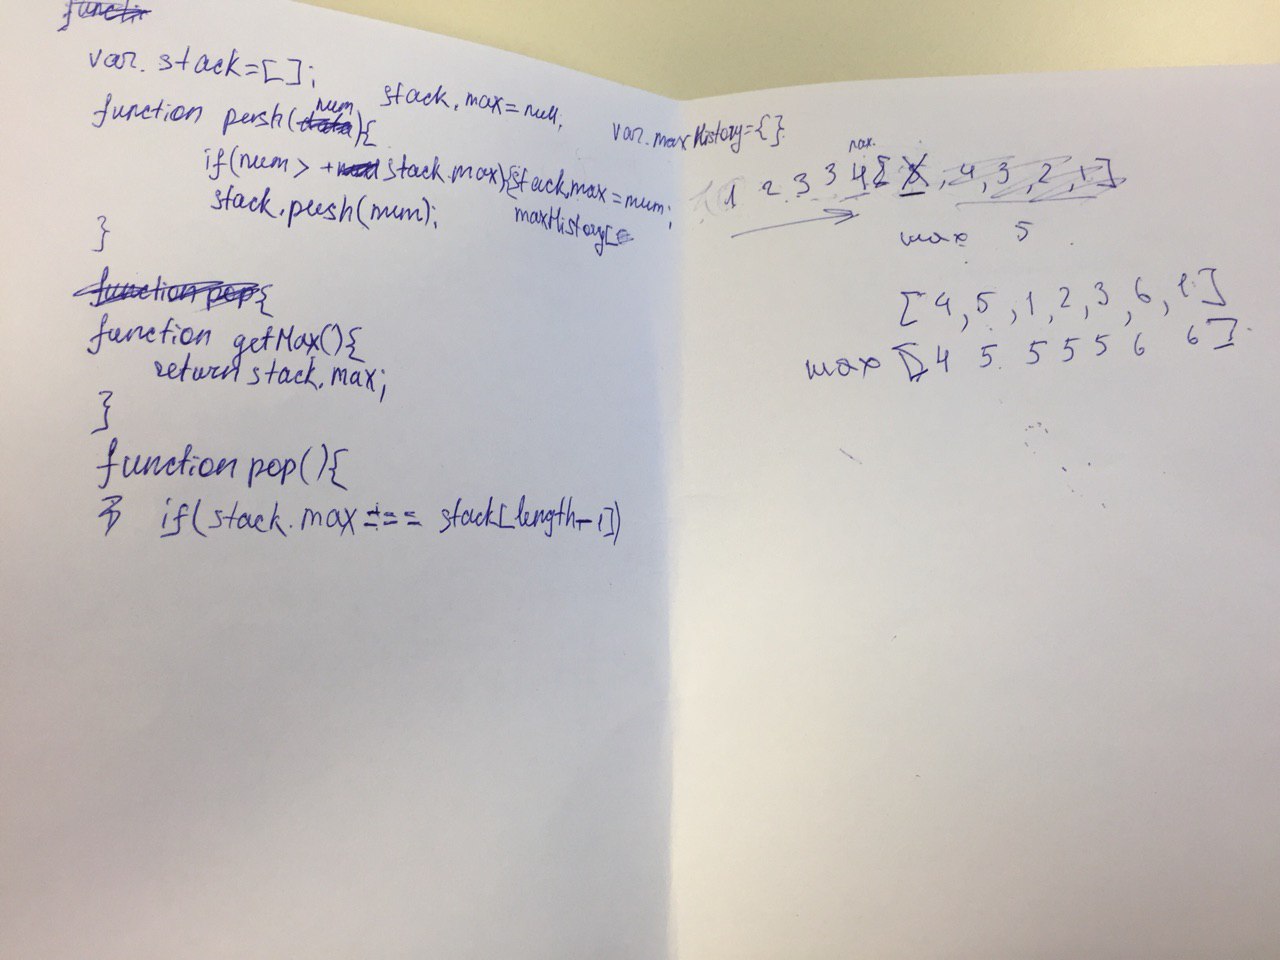 var. stack=[];
stack.max=null;
function push(num){
if(num > stack.max){stack.max=num;
stack.push(num); maxHistory[
}
{
function getMax(){
return stack.max;
}
function pop(){
if(stack.max === stack[length-1])
var.maxHistory={}
max.
1 2 3 3 4 [ X, 4, 3, 2, 1 ]
max 5
[4, 5, 1, 2, 3, 6, 1]
max [4 5 5 5 5 6 6]